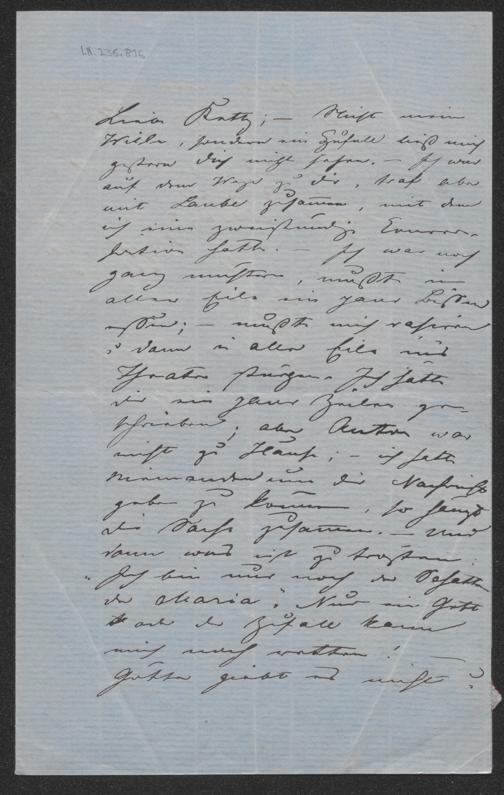 I.N. 236.876
Liebe Kathi; — Nicht mein
Wille, sondern ein Zufall ließ mich
gestern dich nicht sehen. — Ich war
auf dem Wege zu dir, traf aber
mit Laube zusammen, mit dem
ich eine zweistündige Conver-
sation hatte. — Ich war noch
ganz nüchtern, mußte in
aller Eile ein paar Bissen
essen; — mußte mich rasieren
u dann in aller Eile ins
Theater stürzen. Ich hatte
dir ein paar Zeilen ge-
schrieben; aber Anton war
nicht zu Hause; — ich hatte
niemanden um dir Nachricht
geben zu können, so hängt
die Sache zusammen. — Und
dann was ist zu trösten
"Ich bin nur noch der Schatten
der Maria". Nur ein Gott
oder der Zufall kann
mich noch retten! —
Götter giebt es nicht u